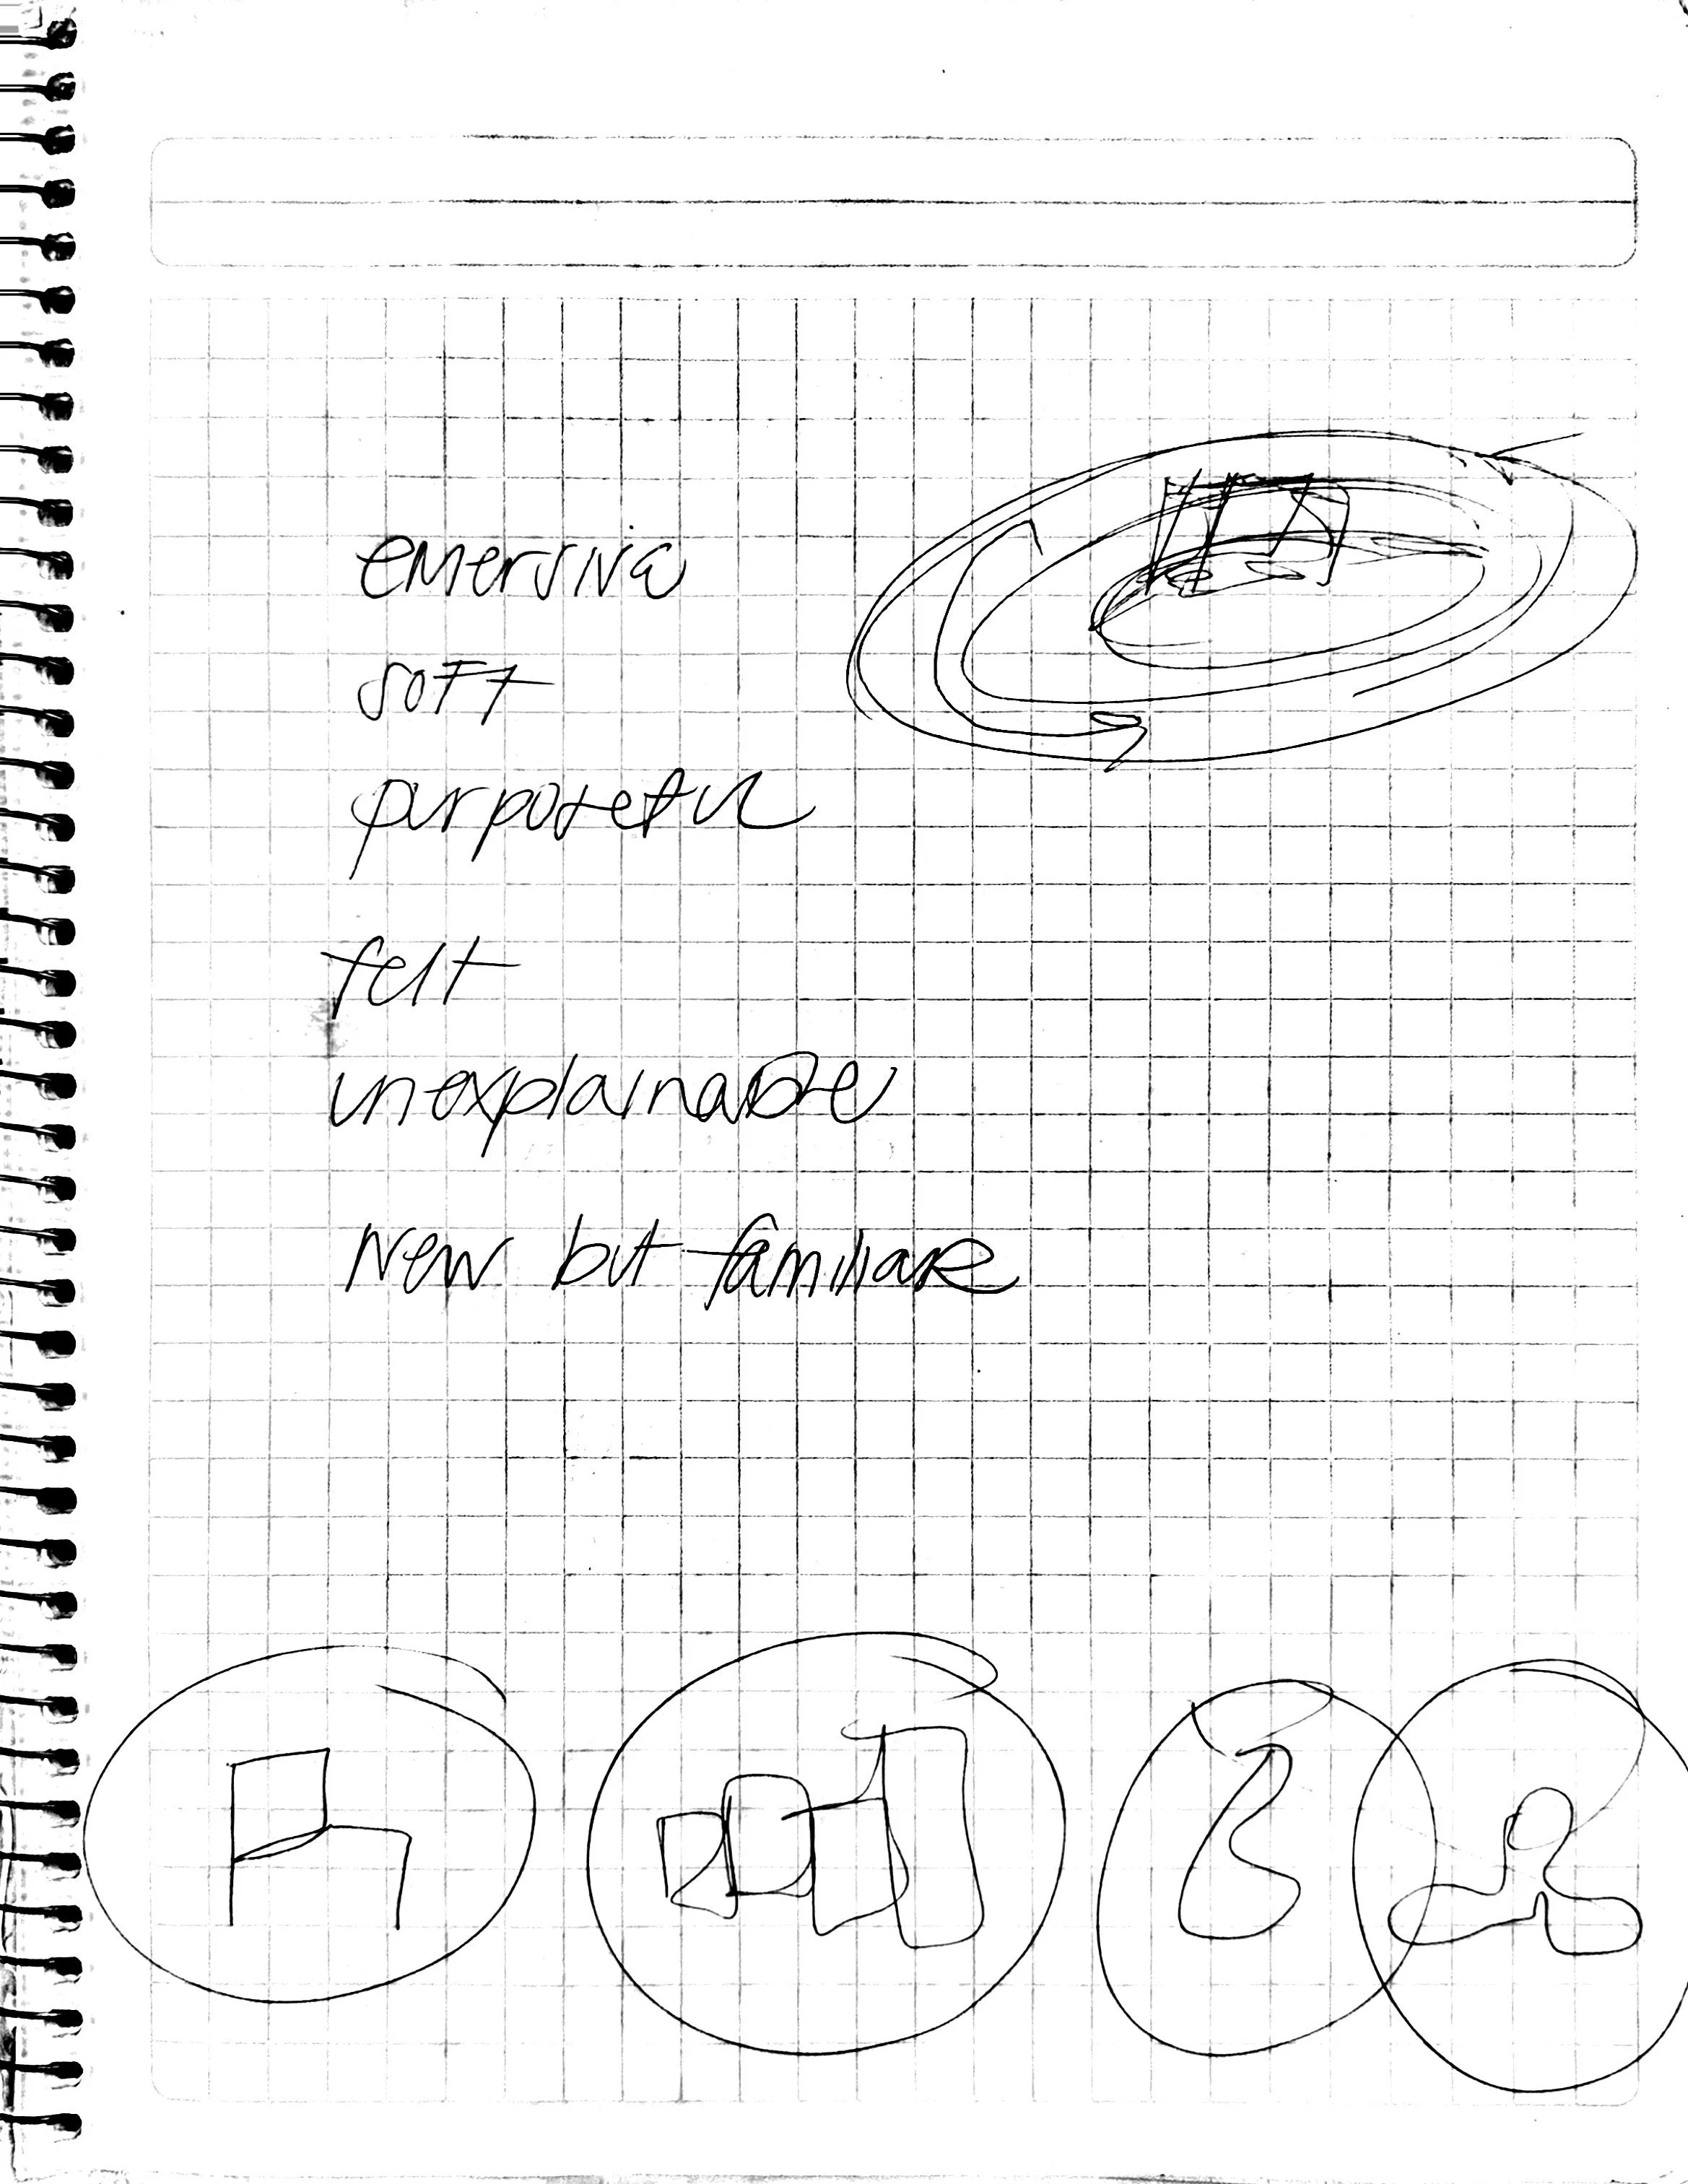 emersive
soft
purposeful
felt
unexplainable
New but familiare